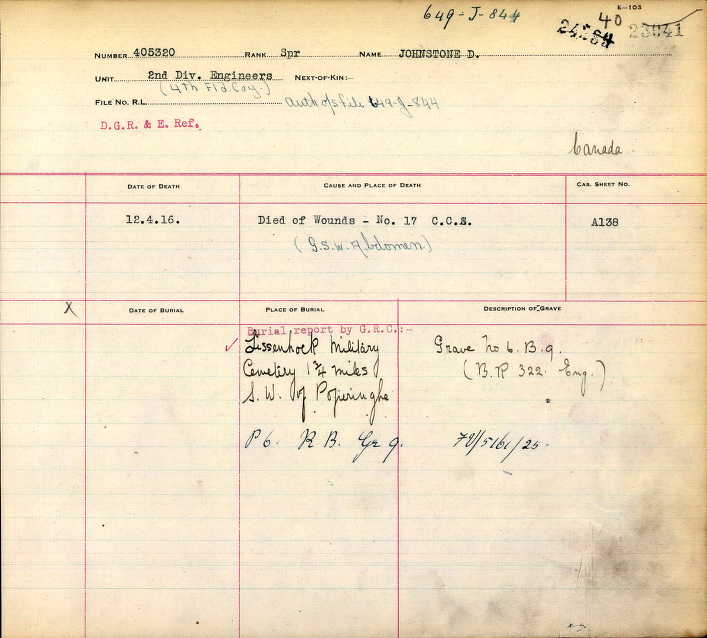 649-J-844
K-103
40
23041
NUMBER 405320 RANK Spr NAME JOHNSTONE D.
UNIT 2nd Div. Engineers NEXT-OF-KIN:-
(4th Fld Coy.)
FILE NO. R.L. Auth o/s file 649-J-844
D.G.R. & E. Ref.
Canada
DATE OF DEATH CAUSE AND PLACE OF DEATH CAS. SHEET NO.
12.4.16. Died of Wounds - No. 17 C.C.S. A138
(G.S.W. Abdomen)
X DATE OF BURIAL PLACE OF BURIAL DESCRIPTION OF GRAVE
Burial report by G.R.C.:-
Lissenhock Military Grave No 6. B. 9.
Cemetery 1 3/4 miles (B.R 322 Eng.)
S. W. of Poperinghe
P 6. R B. Gr 9.